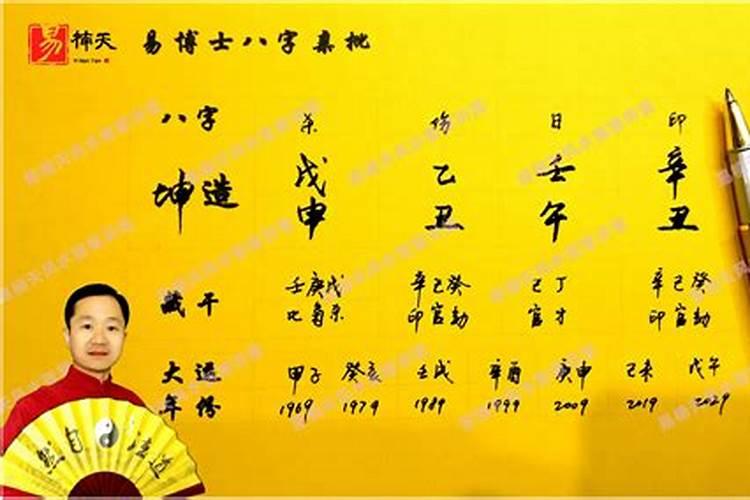 易 楠天 易博士八字集批
八字 杀 伤 日 印
坤造 戊 乙 壬 辛
申 丑 午 丑
藏干 壬庚戊 辛己癸 己丁 辛己癸
比枭杀 印官劫 官才 印官劫
大运 甲子 癸亥 壬戌 辛酉 庚申 己未 戊午
年份 1969 1979 1989 1999 2009 2019 2029
然自法道